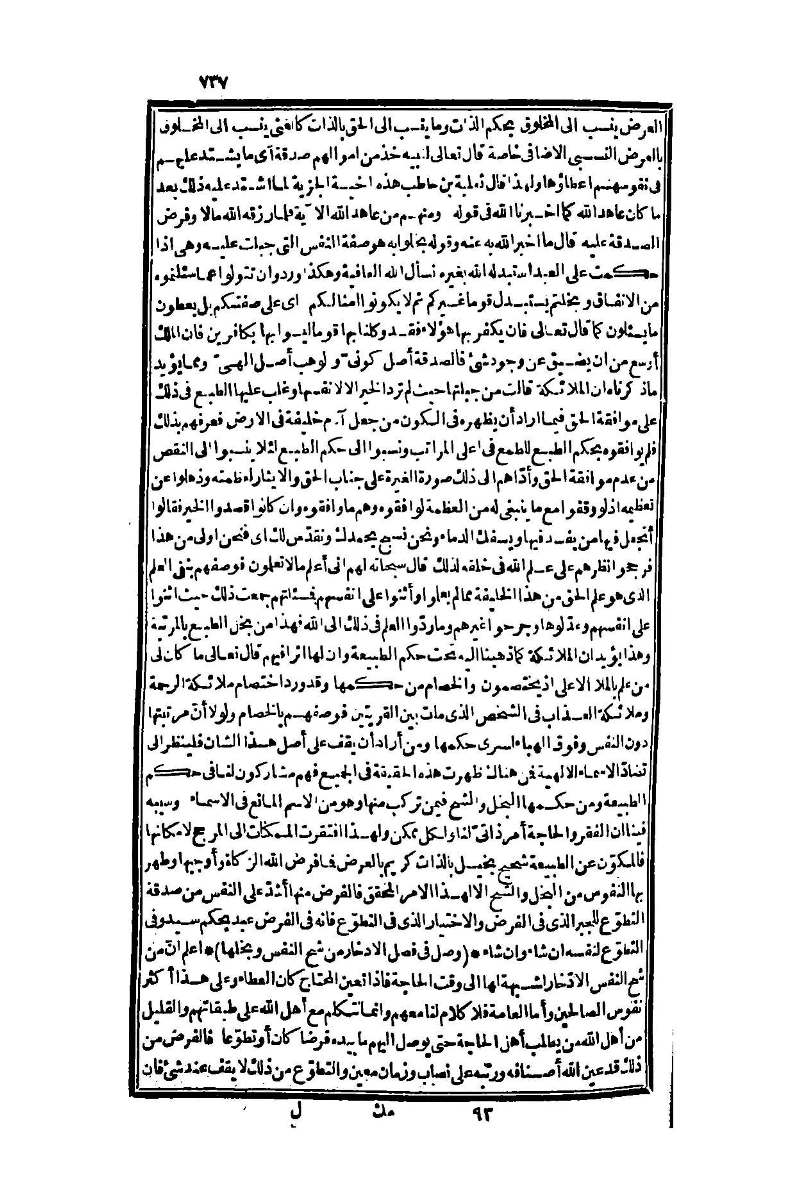 ٧٣٧
العرض ينسب الى المخلوق بحكم الذات وما ينسب الى الحق بالذات كالغنى ينسب الى المخلوق
بالعرض النسبي الاضافى خاصة قال تعالى لنبيه خذ من اموالهم صدقة أى ما يشتد عليهم
فى نفوسهم اعطاؤها ولهذا قال ثعلبة بن حاطب هذه اخية الجزية لما اشتد عليه ذلك بعد
ما كان عاهد الله كما اخبرنا الله فى قوله ومنهم من عاهد الله الآية فلما رزقه الله مالا وفرض
الصدقة عليه قال ما اخبر الله به عنه وقوله بخلوا به هو صفة النفس التى جبلت عليه وهى اذا
حكمت على العبد استبدله الله بغيره نسأل الله العافية وهكذا ورد وان تتولوا عما سئلتموه
من الانفاق وبخلتم يستبدل قوما غيركم ثم لا يكونوا امثالكم اى على صفتكم بل يعطون
ما يسئلون كما قال تعالى فان يكفر بها هؤلاء فقد وكلنا بها قوما ليسوا بها بكافرين فان الملك
أوسع من ان يضيق عن وجود شئ فالصدقة أصل كونى ولوهب أصل الهى ومما يؤيد
ما ذكرناه ان الملائكة قالت من جبلتها حيث لم ترد الخير الا لانفسها وغلب عليها الطبع فى ذلك
على موافقة الحق فيما اراد أن يظهره فى الكون من جعل آدم خليفة فى الارض فعرفهم بذلك
فلم يوافقوه بحكم الطبع للطمع فى اعلى المراتب ونسبوا الى حكم الطبع لئلا ينسبوا الى النقص
من عدم موافقة الحق وأداهم الى ذلك صورة الغيرة على جناب الحق والايثار لعظمته وذهلوا عن
تعظيمه اذ لو وقفوا مع ما ينبغى له من العظمة لوافقوه وهم ما وافقوه وان كانوا قصدوا الخير فقالوا
أتجعل فيها من يفسد فيها ويسفك الدماء ونحن نسبح بحمدك ونقدس لك اى فنحن اولى من هذا
فرجحوا نظرهم على علم الله فى خلقه لذلك قال سبحانه لهم انى أعلم مالا تعلمون فوصفهم بنفى العلم
الذى هو علم الحق من هذا الخليفة بما لم يعلموا وأثنوا على انفسهم فمسئلتهم جمعت ذلك حيث اثنوا
على انفسهم وعدلوها وجرحوا غيرهم وما ردوا العلم فى ذلك الى الله فهذا من بخل الطبع بالمرتبة
وهذا يؤيد ان الملائكة كما ذهبنا اليه تحت حكم الطبيعة وان لها اثرا فيهم قال تعالى ما كان لى
من علم بالملا الاعلى اذ يختصمون والخصام من حكمها وقد ورد اختصام ملائكة الرحمة
وملائكة العذاب فى الشخص الذى مات بين القريتين فوصفهم بالخصام ولولا أن مرتبتها
دون النفس وفوق الهباء لسرى حكمها ومن أراد أن يقف على أصل هذا الشان فلينظر الى
تضاد الاسماء الالهية فمن هناك ظهرت هذه الحقيقة فى الجميع فهم مشاركون لنا فى حكم
الطبيعة ومن حكمها البخل والشح فيمن تركب منها وهو من الاسم المانع فى الاسماء وسببه
فينا ان الفقر والحاجة أمر ذاتى لنا ولكل ممكن ولهذا افتقرت الممكنات الى المرجح لامكانها
فالمكون عن الطبيعة شحيح بخيل بالذات كريم بالعرض فما فرض الله الزكاة وأوجبها وطهر
بها النفوس من البخل والشح الا لهذا الامر المحقق فالفرض منها أشد على النفس من صدقة
التطوع للجبر الذى فى الفرض والاختيار الذى فى التطوع فانه فى الفرض عبد بحكم سيد وفى
التطوع لنفسه ان شاء وان شاء * (وصل فى فصل الادخار من شح النفس وبخلها) * اعلم ان من
شح النفس الادخار والشبهة لها الى وقت الحاجة فاذا تعين المحتاج كان العطاء وعلى هذا أكثر
نفوس الصالحين وأما العامة فلا كلام لنا معهم وانما نتكلم مع أهل الله على طبقاتهم والقليل
من أهل الله من يطلب أهل الحاجة حتى يوصل اليهم ما بيده فرضا كان أو تطوعا فالفرض من
ذلك قد عين الله أصنافه ورتبه على نصاب وزمان معين والتطوع من ذلك لا يقف عند شئ فان
٩٣ مك ل